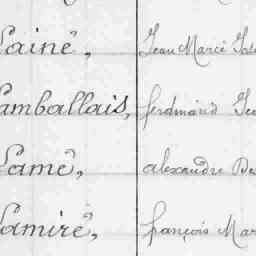 Lainé, Jean Marie
Lamballais, ferdinand
Lamé, alexandre
Lamiré, françois Mar